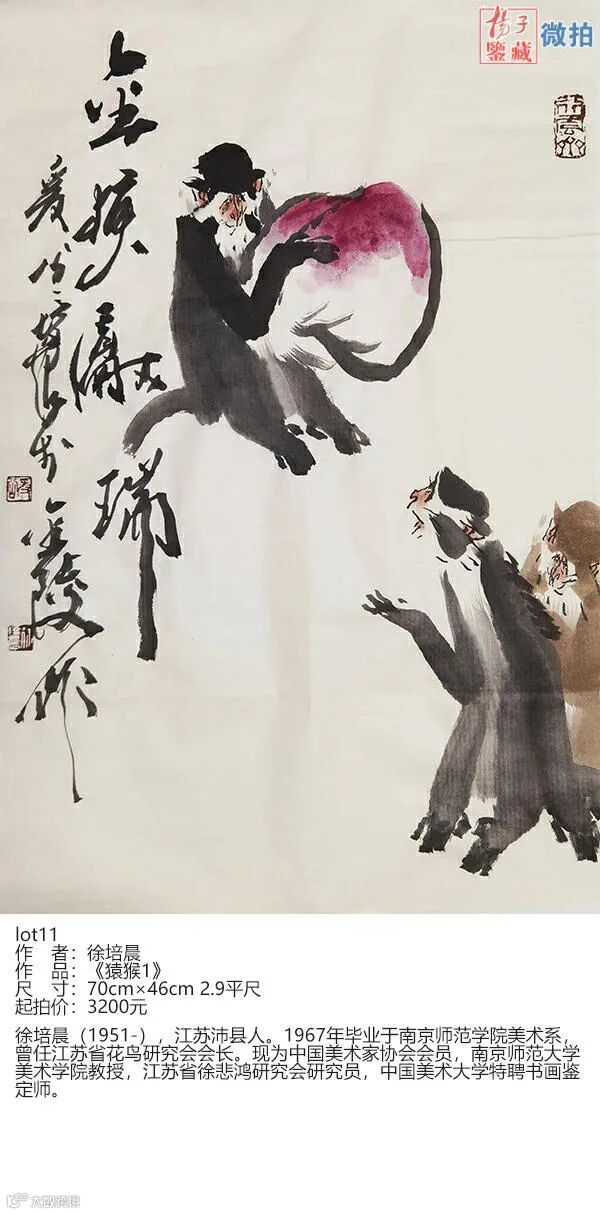 扬子
鉴藏
微拍
金猴满
瑞
金陵
lot11
作 者：徐培晨
作 品：《猿猴1》
尺 寸：70cm×46cm 2.9平尺
起拍价：3200元
徐培晨（1951-），江苏沛县人。1967年毕业于南京师范学院美术系，
曾任江苏省花鸟研究会会长。现为中国美术家协会会员，南京师范大学
美术学院教授，江苏省徐悲鸿研究会研究员，中国美术大学特聘书画鉴
定师。
大数跨境